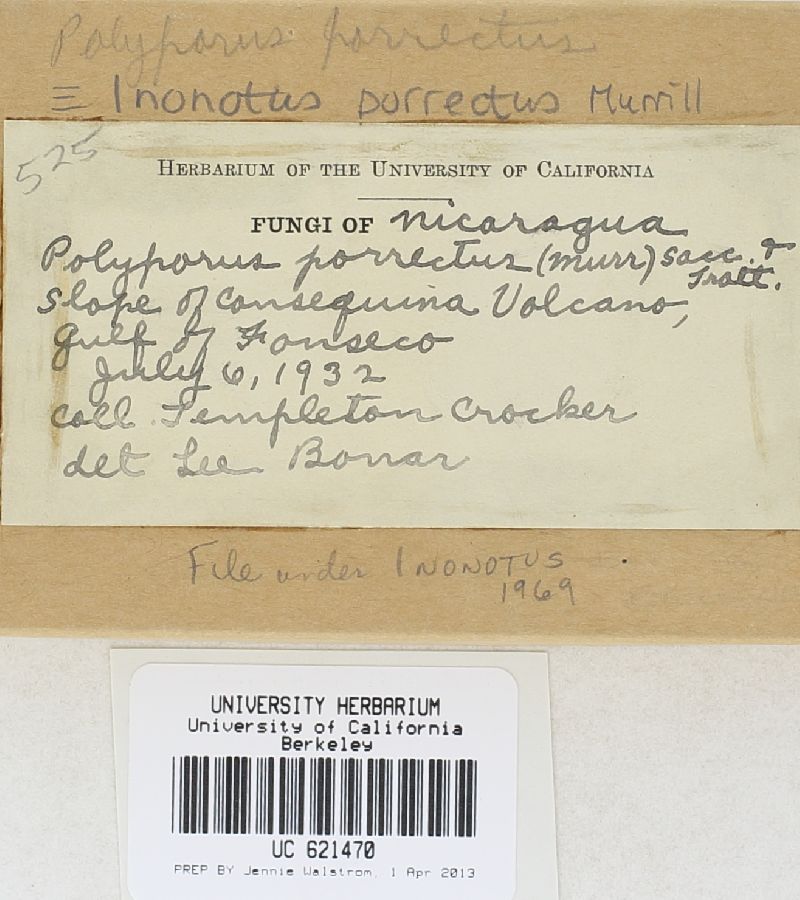 Polyporus porrectus
≡ Inonotus porrectus Murrill
525
HERBARIUM OF THE UNIVERSITY OF CALIFORNIA
FUNGI OF Nicaragua
Polyporus porrectus (Murr) Sacc. & Trott.
Slope of Consequina Volcano,
Gulf of Fonseco
July 6, 1932
coll. Templeton Crocker
det Lee Bonar
File under INONOTUS
1969
UNIVERSITY HERBARIUM
University of California
Berkeley
UC 621470
PREP BY Jennie Walstrom, 1 Apr 2013